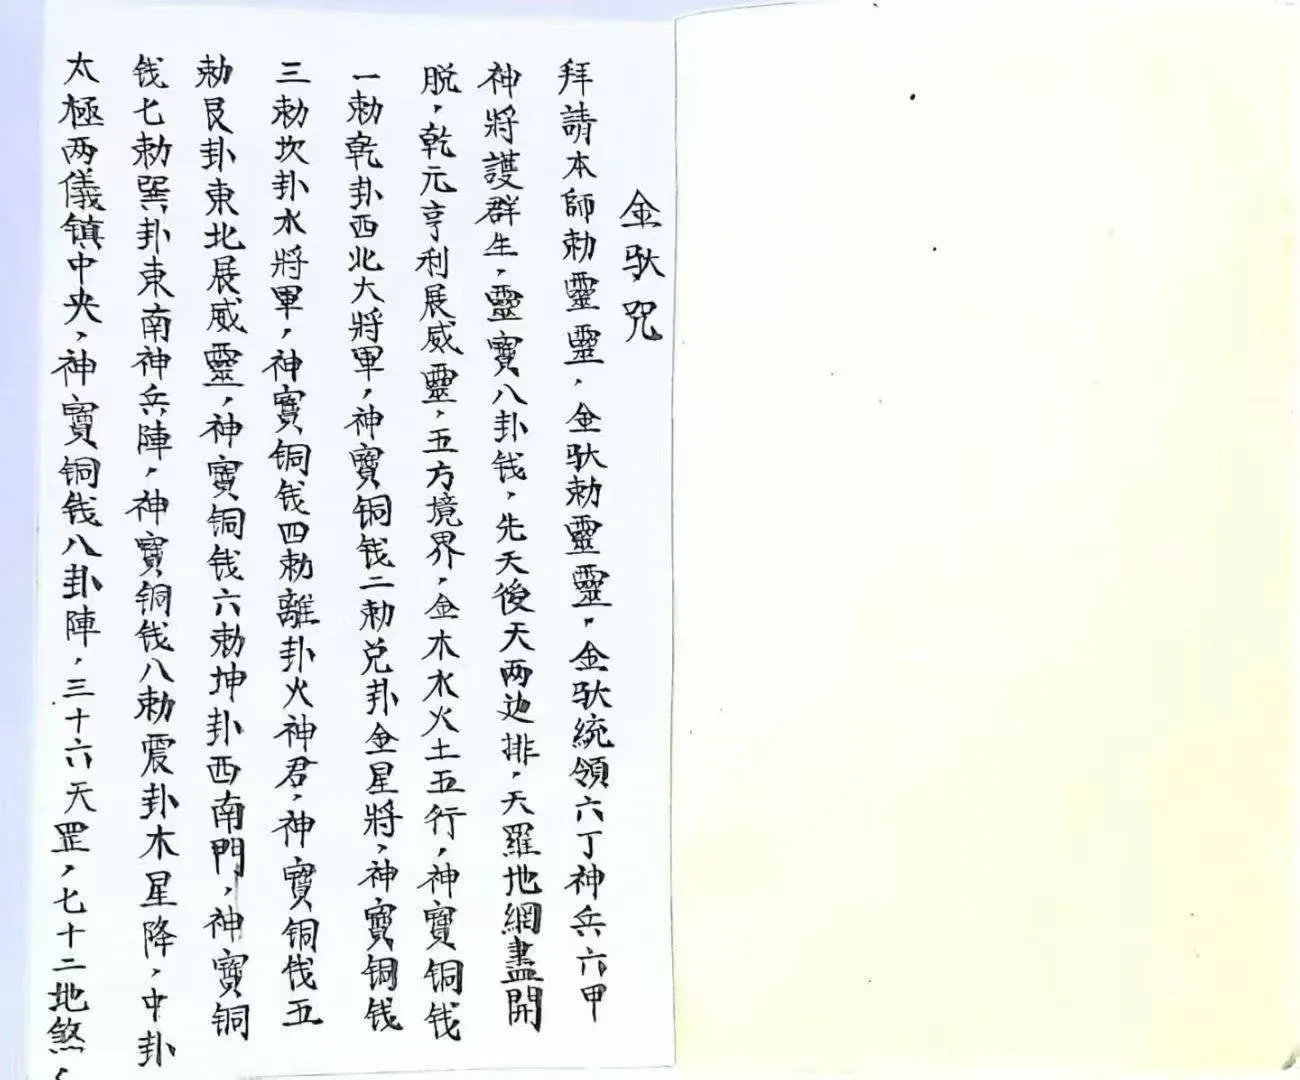 金馱咒
拜請本師勅靈靈，金馱勅靈靈，金馱統領六丁神兵六甲
神將護群生，靈寶八卦钱，先天後天两边排，天羅地網盡開
脱，乾元亨利展威靈，五方境界，金木水火土五行，神寶铜钱
一勅乾卦西北大將軍，神寶铜钱二勅兑卦金星將，神寶铜钱
三勅坎卦水將軍，神寶铜钱四勅離卦火神君，神寶铜钱五
勅艮卦東北展威靈，神寶铜钱六勅坤卦西南門，神寶铜
钱七勅巽卦東南神兵陣，神寶铜钱八勅震卦木星降，中卦
太極两儀镇中央，神寶铜钱八卦陣，三十六天罡，七十二地煞，